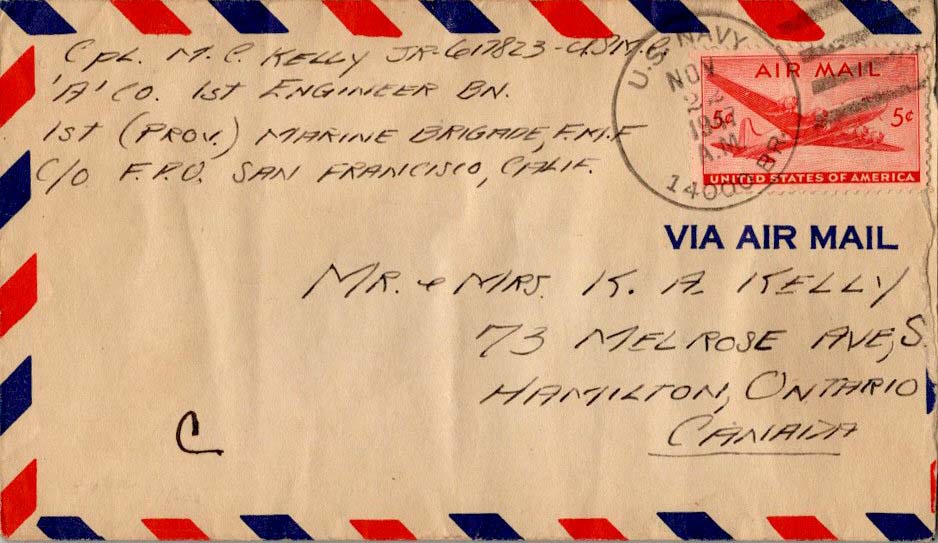 Cpl. M. C. KELLY JR-617823-USMC
'A' CO. 1st ENGINEER BN.
1st (PROV.) MARINE BRIGADE, F.M.F
C/O F.P.O. SAN FRANCISCO, CALIF.
U.S. NAVY
NOV
2
1947
A.M
14000 BR.
AIR MAIL
5¢ 5¢
UNITED STATES OF AMERICA
VIA AIR MAIL
MR. & MRS. K. A. KELLY
73 MELROSE AVE, S.
HAMILTON, ONTARIO
CANADA
C